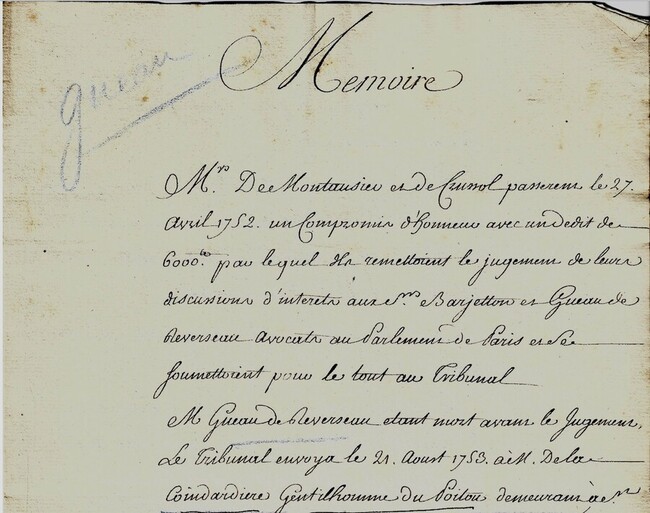 gueau
Memoire
Mrs. De Montausier et de Crussol passerent le 27.
Avril 1752. un Compromis d'honneur avec un dedit de
6000.lt par lequel ils remettoient le jugement de leurs
discussions d'interets aux Srs. Barjetton et Gueau de
Reverseau avocats au Parlement de Paris et se
soumettoient pour le tout au Tribunal
M Gueau de Reverseau etant mort avant le Jugement,
Le Tribunal envoya le 21. Aoust 1753. à M. De la
Coindardiere Gentilhomme du Poitou demeurant à